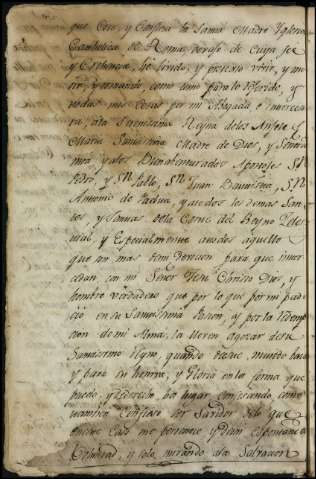 que Cree, y Confiesa la Santa Madre Yglesia
Catholica de Roma, devajo de Cuya fee
y Creencia, he vivido, y protesto vivir, y mo
rir, y tomando como tomo para
todas mis Cosas por mi Abogada e Intersesora
ra, a la Serenisima Reyna de los Angeles
Maria Santisima Madre de Dios, y Señora
mia y a los Bienaventurados Apostoles Sn
Pedro, y Sn Pablo, Sn Juan Bautista, Sn
Antonio de Padua, y a todos los demas San
tos y Santas de la Corte del Reyno Celes
tial, y Especialmente a todos aquellos
que con mas tengo Devocion, para que inter
cedan con mi Señor Jesu Christo Dios, y
hombre verdadero que por lo que por mi pad
ció en su Santisima Pasion, y por la Redemp
cion de mi Alma, la lleven a gozar de su
Santisimo Reyno, quando de este mundo baia
y para su honrra, y Gloria en la forma que
puedo, y de derecho ha lugar, confesando, como
Confieso ser Savidor de lo que
en este Caso me pertenece y de mi Espontanea
Voluntad, y solo mirando a la Salvacion